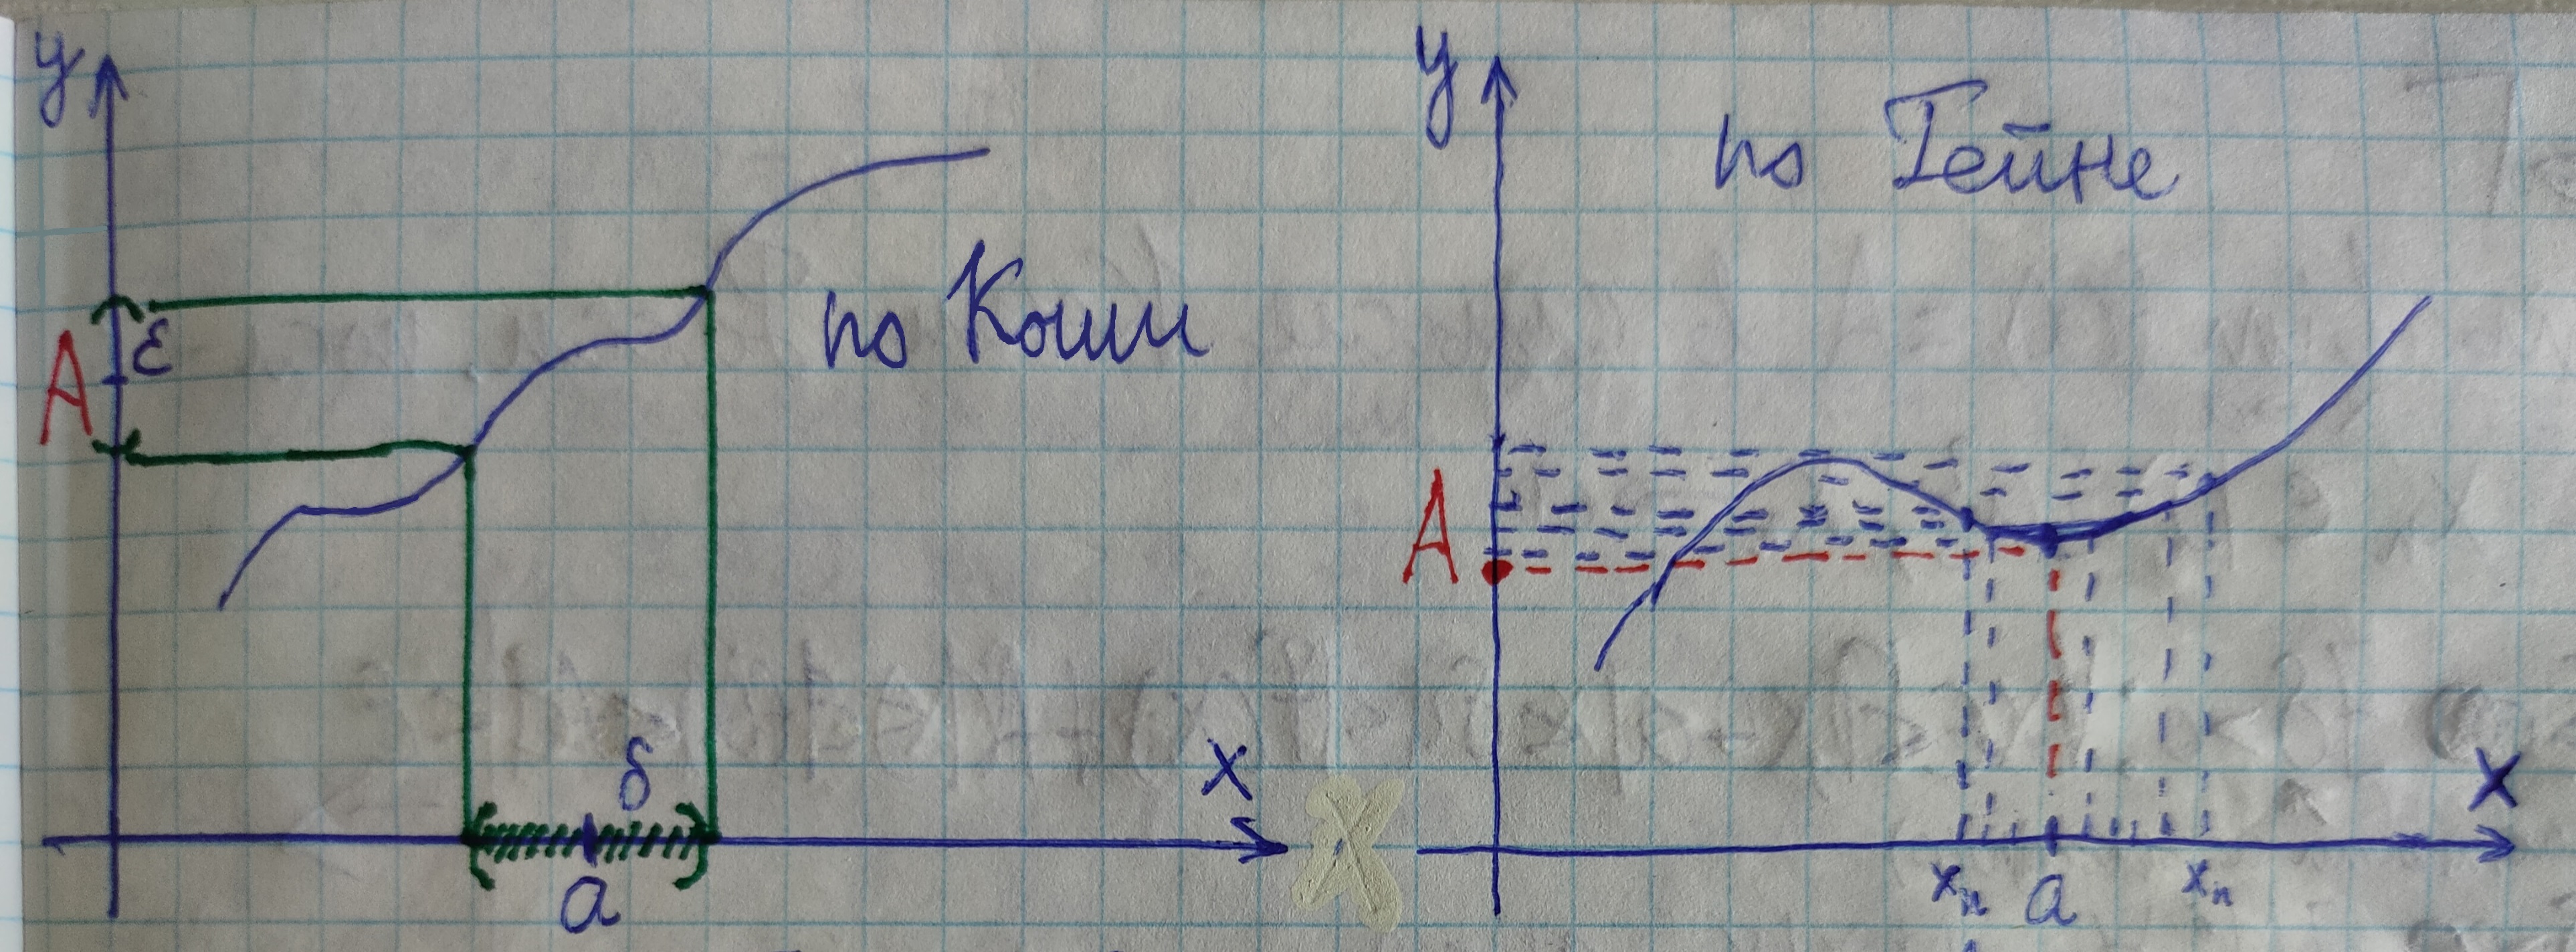 y
по Коши
A
ε
δ
x
a
y
по Гейне
A
x
xn
a
xn